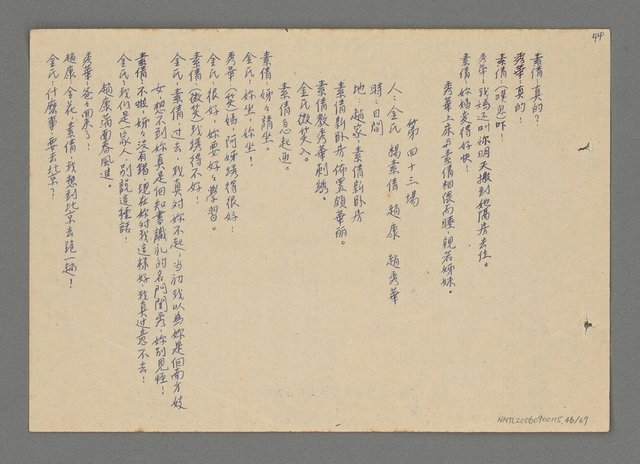 44
素倩：真的？
秀華：真的！
素倩：嘆息咋！
秀華：我媽还叫你明天搬到她隔房去住。
素倩：妳媽変得好快！
秀華上床与素倩相偎而睡，親若姊妹。
第四十三場
人：金氏 楊素倩 趙康 趙秀華
時：日間
地：趙家，素倩新臥房
素倩新臥房佈置頗華丽。
素倩教秀華刺綉。
金氏微笑入。
素倩急起迎。
素倩：姊々請坐。
金氏：妳坐，妳坐！
秀華（笑）媽，阿姨綉得很好！
金氏：很好，妳要好々學習。
素倩（微笑）我綉得不好！
金氏：素倩，过去，我真对妳不起，当初我以為妳是個南方妓
女，想不到妳真是個知書識礼的名門閨秀，妳別見怪！
素倩：不啦，姊々没有錯，現在妳对我這樣好，我真过意不去！
金氏：我們是一家人，別說這種話！
趙康滿面春風進。
秀華：爸々回来了！
趙康：金花，素倩，我想到北京去跑一趟！
金氏：什麽事，要去北京？
NMTL20060900115,46/67